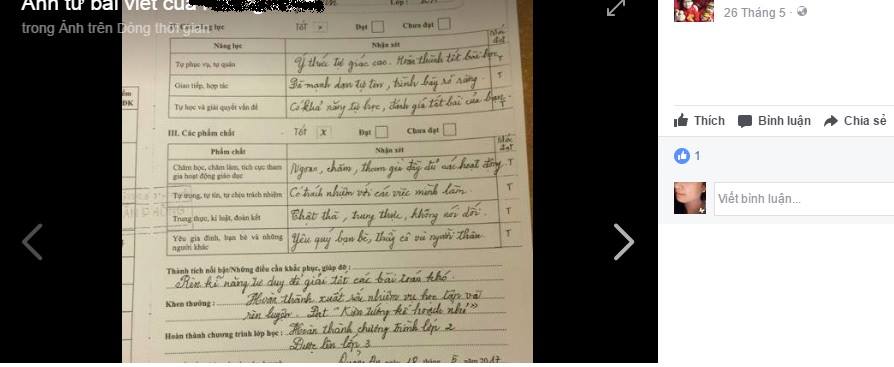 Ảnh từ bài viết của
trong Ảnh trên Dòng thời gian
26 Tháng 5
Lớp :
lực
Tốt x Đạt Chưa đạt
Năng lực Nhận xét Mức đạt
Tự phục vụ, tự quản Ý thức tự giác cao. Hoàn thành tốt bài học T
Giao tiếp, hợp tác Đã mạnh dạn tự tin, trình bày rõ ràng. T
Tự học và giải quyết vấn đề Có khả năng tự học, đánh giá tốt bài của bạn. T
III. Các phẩm chất Tốt x Đạt Chưa đạt
Phẩm chất Nhận xét Mức đạt
Chăm học, chăm làm, tích cực tham gia hoạt động giáo dục Ngoan, chăm, tham gia đầy đủ các hoạt động. T
Tự trọng, tự tin, tự chịu trách nhiệm Có trách nhiệm với các việc mình làm. T
Trung thực, kỉ luật, đoàn kết Thật thà, trung thực, không nói dối. T
Yêu gia đình, bạn bè và những người khác Yêu quý bạn bè, thầy cô và người thân. T
Thành tích nổi bật/Những điều cần khắc phục, giúp đỡ :
Rèn kĩ năng tư duy để giải tốt các bài toán khó.
Khen thưởng : Hoàn thành xuất sắc nhiệm vụ học tập và
rèn luyện. Đạt "Kiện tướng kế hoạch nhỏ"
Hoàn thành chương trình lớp học : Hoàn thành chương trình lớp 2
Được lên lớp 3
ngày 18 tháng 5 năm 2017
Thích Bình luận Chia sẻ
1
Viết bình luận...